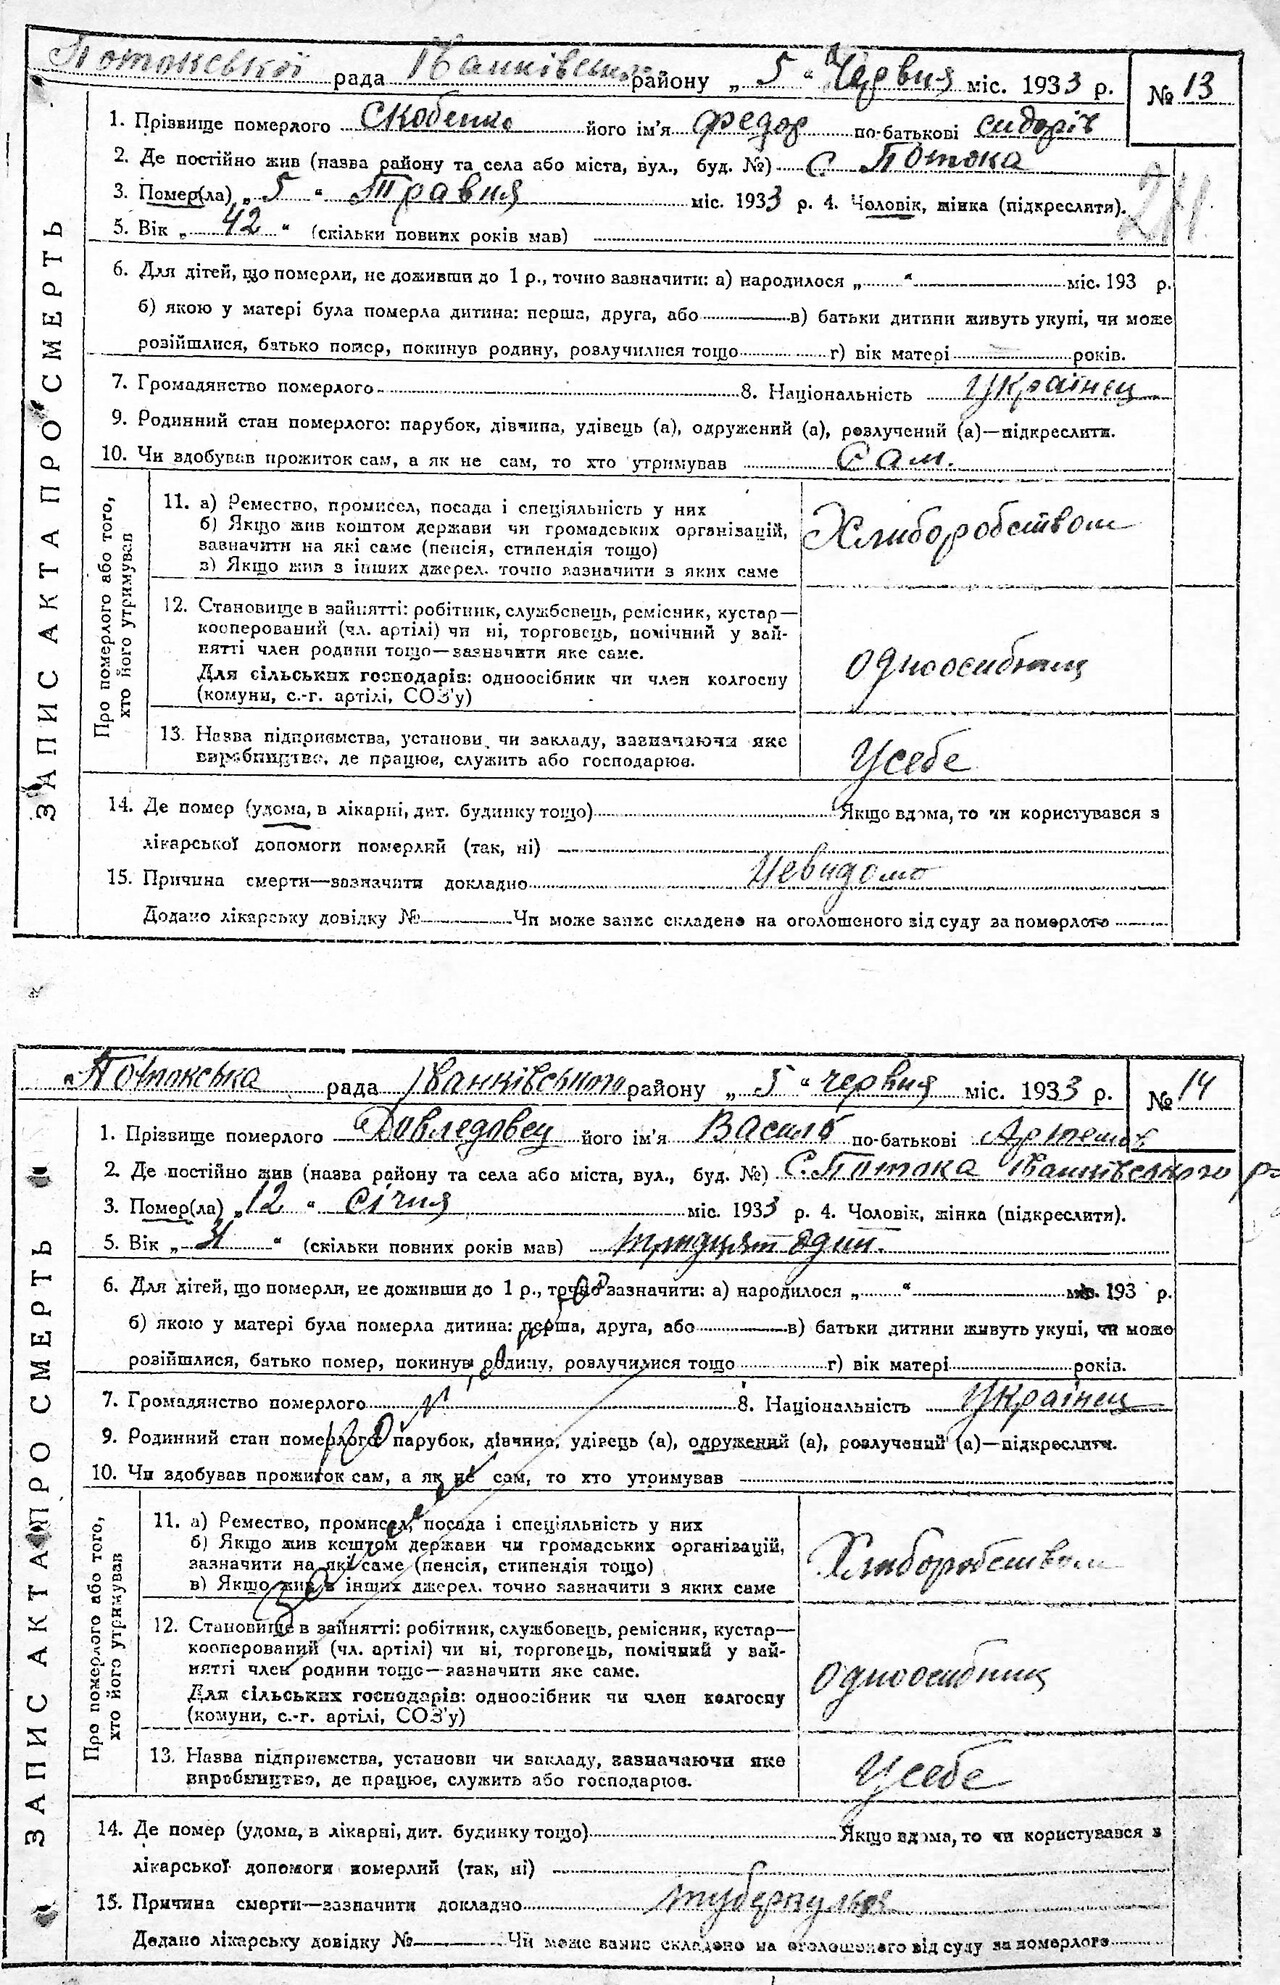 Потокської рада Іванківського району „ 5 “ Червня міс. 1933 р. № 13
1. Прізвище померлого Скобенко його ім'я Федор по-батькові Сидорів
2. Де постійно жив (назва району та села або міста, вул., буд. №) С. Потока
3. Помер(ла) „ 5 “ Травня міс. 1933 р. 4. Чоловік, жінка (підкреслити).
5. Вік „ 42 “ (скільки повних років мав)
6. Для дітей, що померли, не доживши до 1 р., точно зазначити: а) народилося „ “ міс. 193 р.
б) якою у матері була померла дитина: перша, друга, або в) батьки дитини живуть укупі, чи може
розійшлися, батько помер, покинув родину, розлучилися тощо г) вік матері років.
7. Громадянство померлого 8. Національність Українец
9. Родинний стан померлого: парубок, дівчина, удівець (а), одружений (а), розлучений (а)—підкреслити.
10. Чи здобував прожиток сам, а як не сам, то хто утримував Сам.
ЗАПИС АКТА ПРО СМЕРТЬ
Про померлого або того, хто його утримував
11. а) Ремество, промисел, посада і спеціяльність у них
б) Якщо жив коштом держави чи громадських організацій,
зазначити на які саме (пенсія, стипендія тощо)
в) Якщо жив з інших джерел. точно зазначити з яких саме
Хлиборобством
12. Становище в зайнятті: робітник, службовець, ремісник, кустар—
кооперований (чл. артілі) чи ні, торговець, помічний у зай-
нятті член родини тощо—зазначити яке саме.
Для сільських господарів: одноосібник чи член колгоспу
(комуни, с.-г. артілі, СОЗ'у)
одноосибниц
13. Назва підприємства, установи чи закладу, зазначаючи яке
виробництво, де працює, служить або господарює.
Усебе
14. Де помер (удома, в лікарні, дит. будинку тощо) Якщо вдома, то чи користувався з
лікарської допомоги померлий (так, ні)
15. Причина смерти—зазначити докладно Невидомо
Додано лікарську довідку № Чи може запис складено на оголошеного від суду за померлого
Потокська рада Іванківського району „ 5 “ червня міс. 1933 р. № 14
1. Прізвище померлого Довледовец його ім'я Василь по-батькові Артемов
2. Де постійно жив (назва району та села або міста, вул., буд. №) С. Потока Іванківського р
3. Помер(ла) „ 12 “ січня міс. 1933 р. 4. Чоловік, жінка (підкреслити).
5. Вік „ 31 “ (скільки повних років мав) тридцят один.
6. Для дітей, що померли, не доживши до 1 р., точно зазначити: а) народилося „ “ міс. 193 р.
б) якою у матері була померла дитина: перша, друга, або в) батьки дитини живуть укупі, чи може
розійшлися, батько помер, покинув родину, розлучилися тощо г) вік матері років.
7. Громадянство померлого 8. Національність Українец
9. Родинний стан померлого: парубок, дівчина, удівець (а), одружений (а), розлучений (а)—підкреслити.
10. Чи здобував прожиток сам, а як не сам, то хто утримував
ЗАПИС АКТА ПРО СМЕРТЬ
Про померлого або того, хто його утримував
11. а) Ремество, промисел, посада і спеціяльність у них
б) Якщо жив коштом держави чи громадських організацій,
зазначити на які саме (пенсія, стипендія тощо)
в) Якщо жив з інших джерел. точно зазначити з яких саме
Хлиборобством
12. Становище в зайнятті: робітник, службовець, ремісник, кустар—
кооперований (чл. артілі) чи ні, торговець, помічний у зай-
нятті член родини тощо—зазначити яке саме.
Для сільських господарів: одноосібник чи член колгоспу
(комуни, с.-г. артілі, СОЗ'у)
одноосибниц
13. Назва підприємства, установи чи закладу, зазначаючи яке
виробництво, де працює, служить або господарює.
Усебе
14. Де помер (удома, в лікарні, дит. будинку тощо) Якщо вдома, то чи користувався з
лікарської допомоги померлий (так, ні)
15. Причина смерти—зазначити докладно туберкульоз
Додано лікарську довідку № Чи може запис складено на оголошеного від суду за померлого